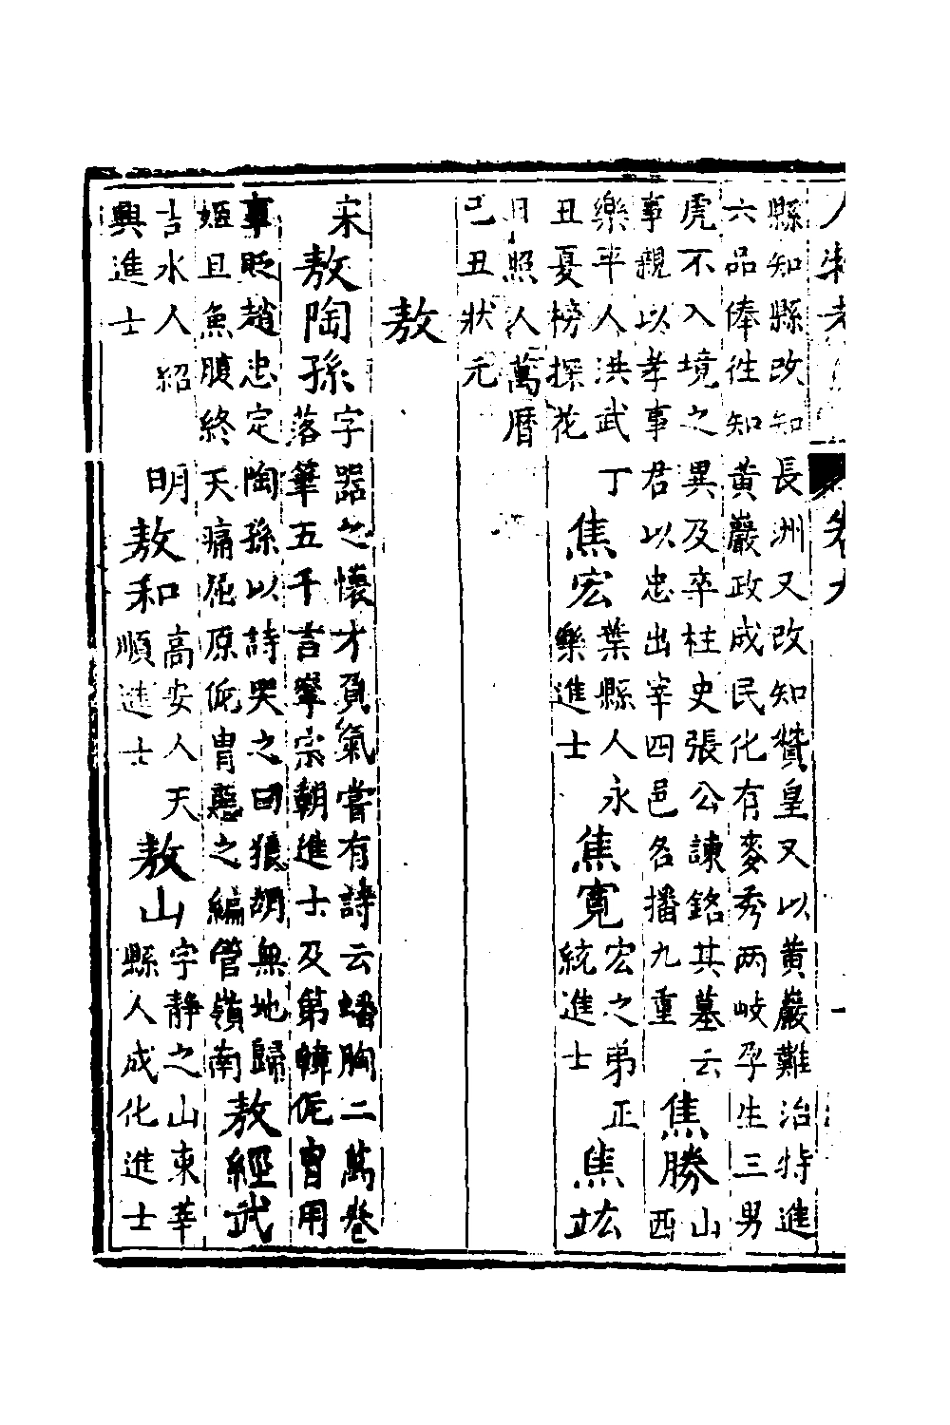 縣知縣改知長洲又改知贊皇又以黃巖難治特進
六品俸往知黃巖政成民化有麥秀兩岐孕生三男
虎不入境之異及卒柱史張公諫銘其墓云
事親以孝事君以忠出宰四邑各播九重
焦勝
山
西
樂平人洪武丁
丑憂榜探花
焦宏
葉縣人永
樂進士
焦寬
宏之弟正
統進士
焦竑
日照人萬曆
己丑狀元
敖
宋
敖陶孫
字器之懷才負氣嘗有詩云蟠胸二萬卷
落筆五千言寧宗朝進士及第韓侂胄用
事貶趙忠定陶孫以詩哭之曰狼胡無地歸
姬旦魚腹終天痛屈原侂胄惡之編管嶺南
敖經武
吉水人紹
興進士
明
敖和
高安人天
順進士
敖山
字靜之山東莘
縣人成化進士